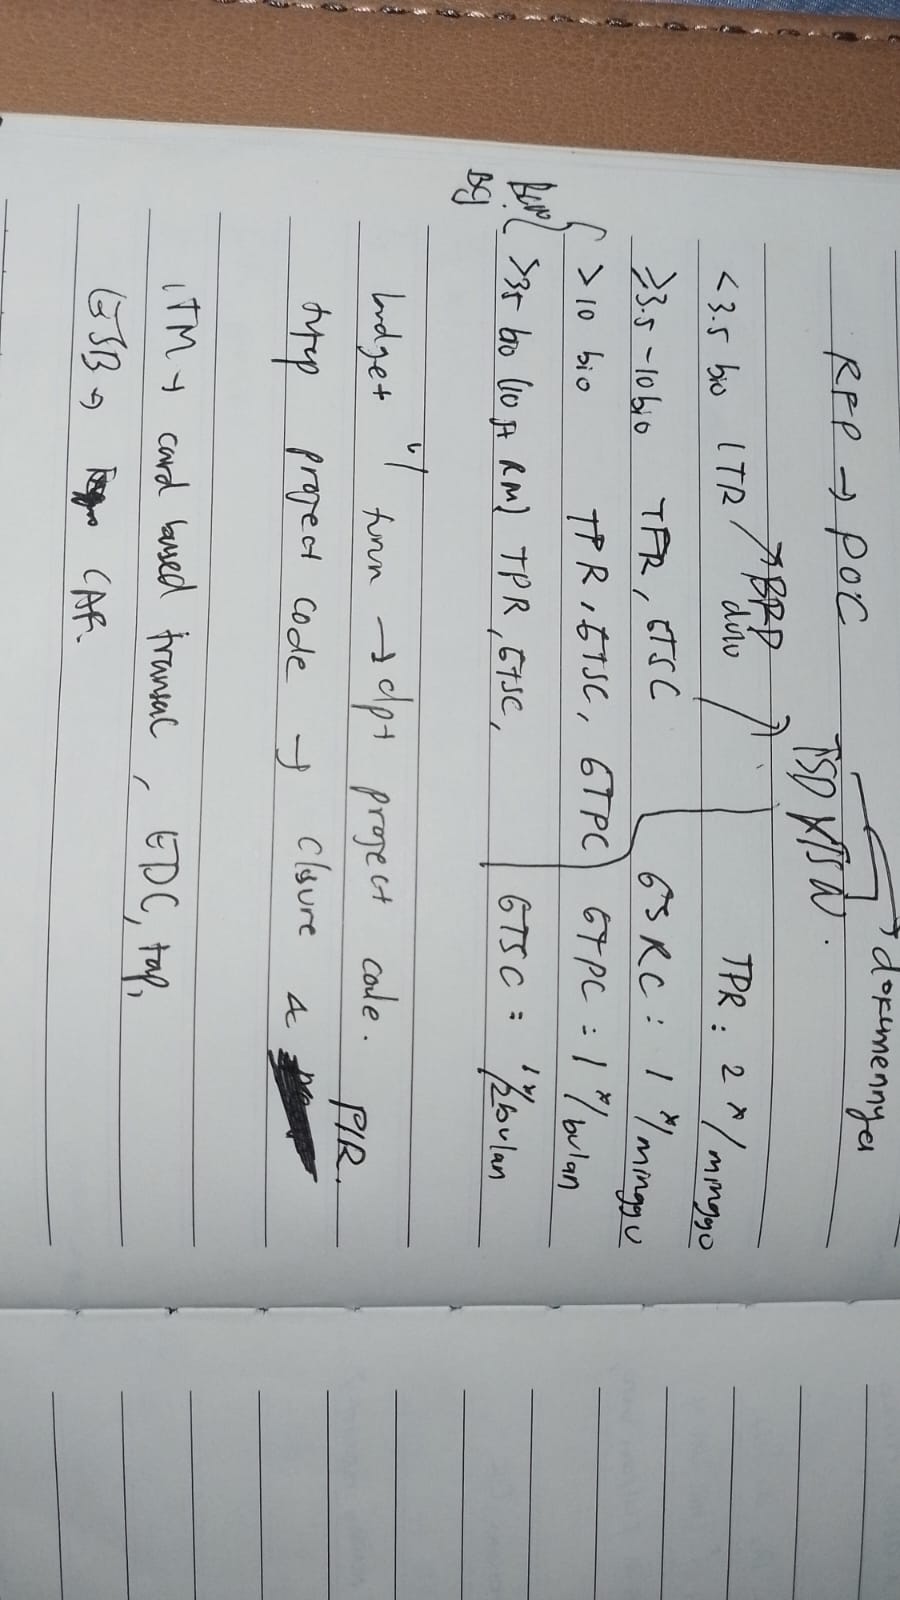 RFP → POC
→ dokumennya
TSD
BRD dulu
< 3.5 bio
TPR : 2 x / minggu
≥ 3.5 - 10 bio TPR, GTSC
GSRC : 1 x / minggu
> 10 bio TPR, GTSC, GTPC
GTPC = 1 x / bulan
> 35 bio (10 jt RM) TPR, GTSC,
GTSC = 1x / 2 bulan
budget turun → dpt project code.
tutup project code → closure & PIR.
ITM → card based transac, EDC, tap,
ESB →